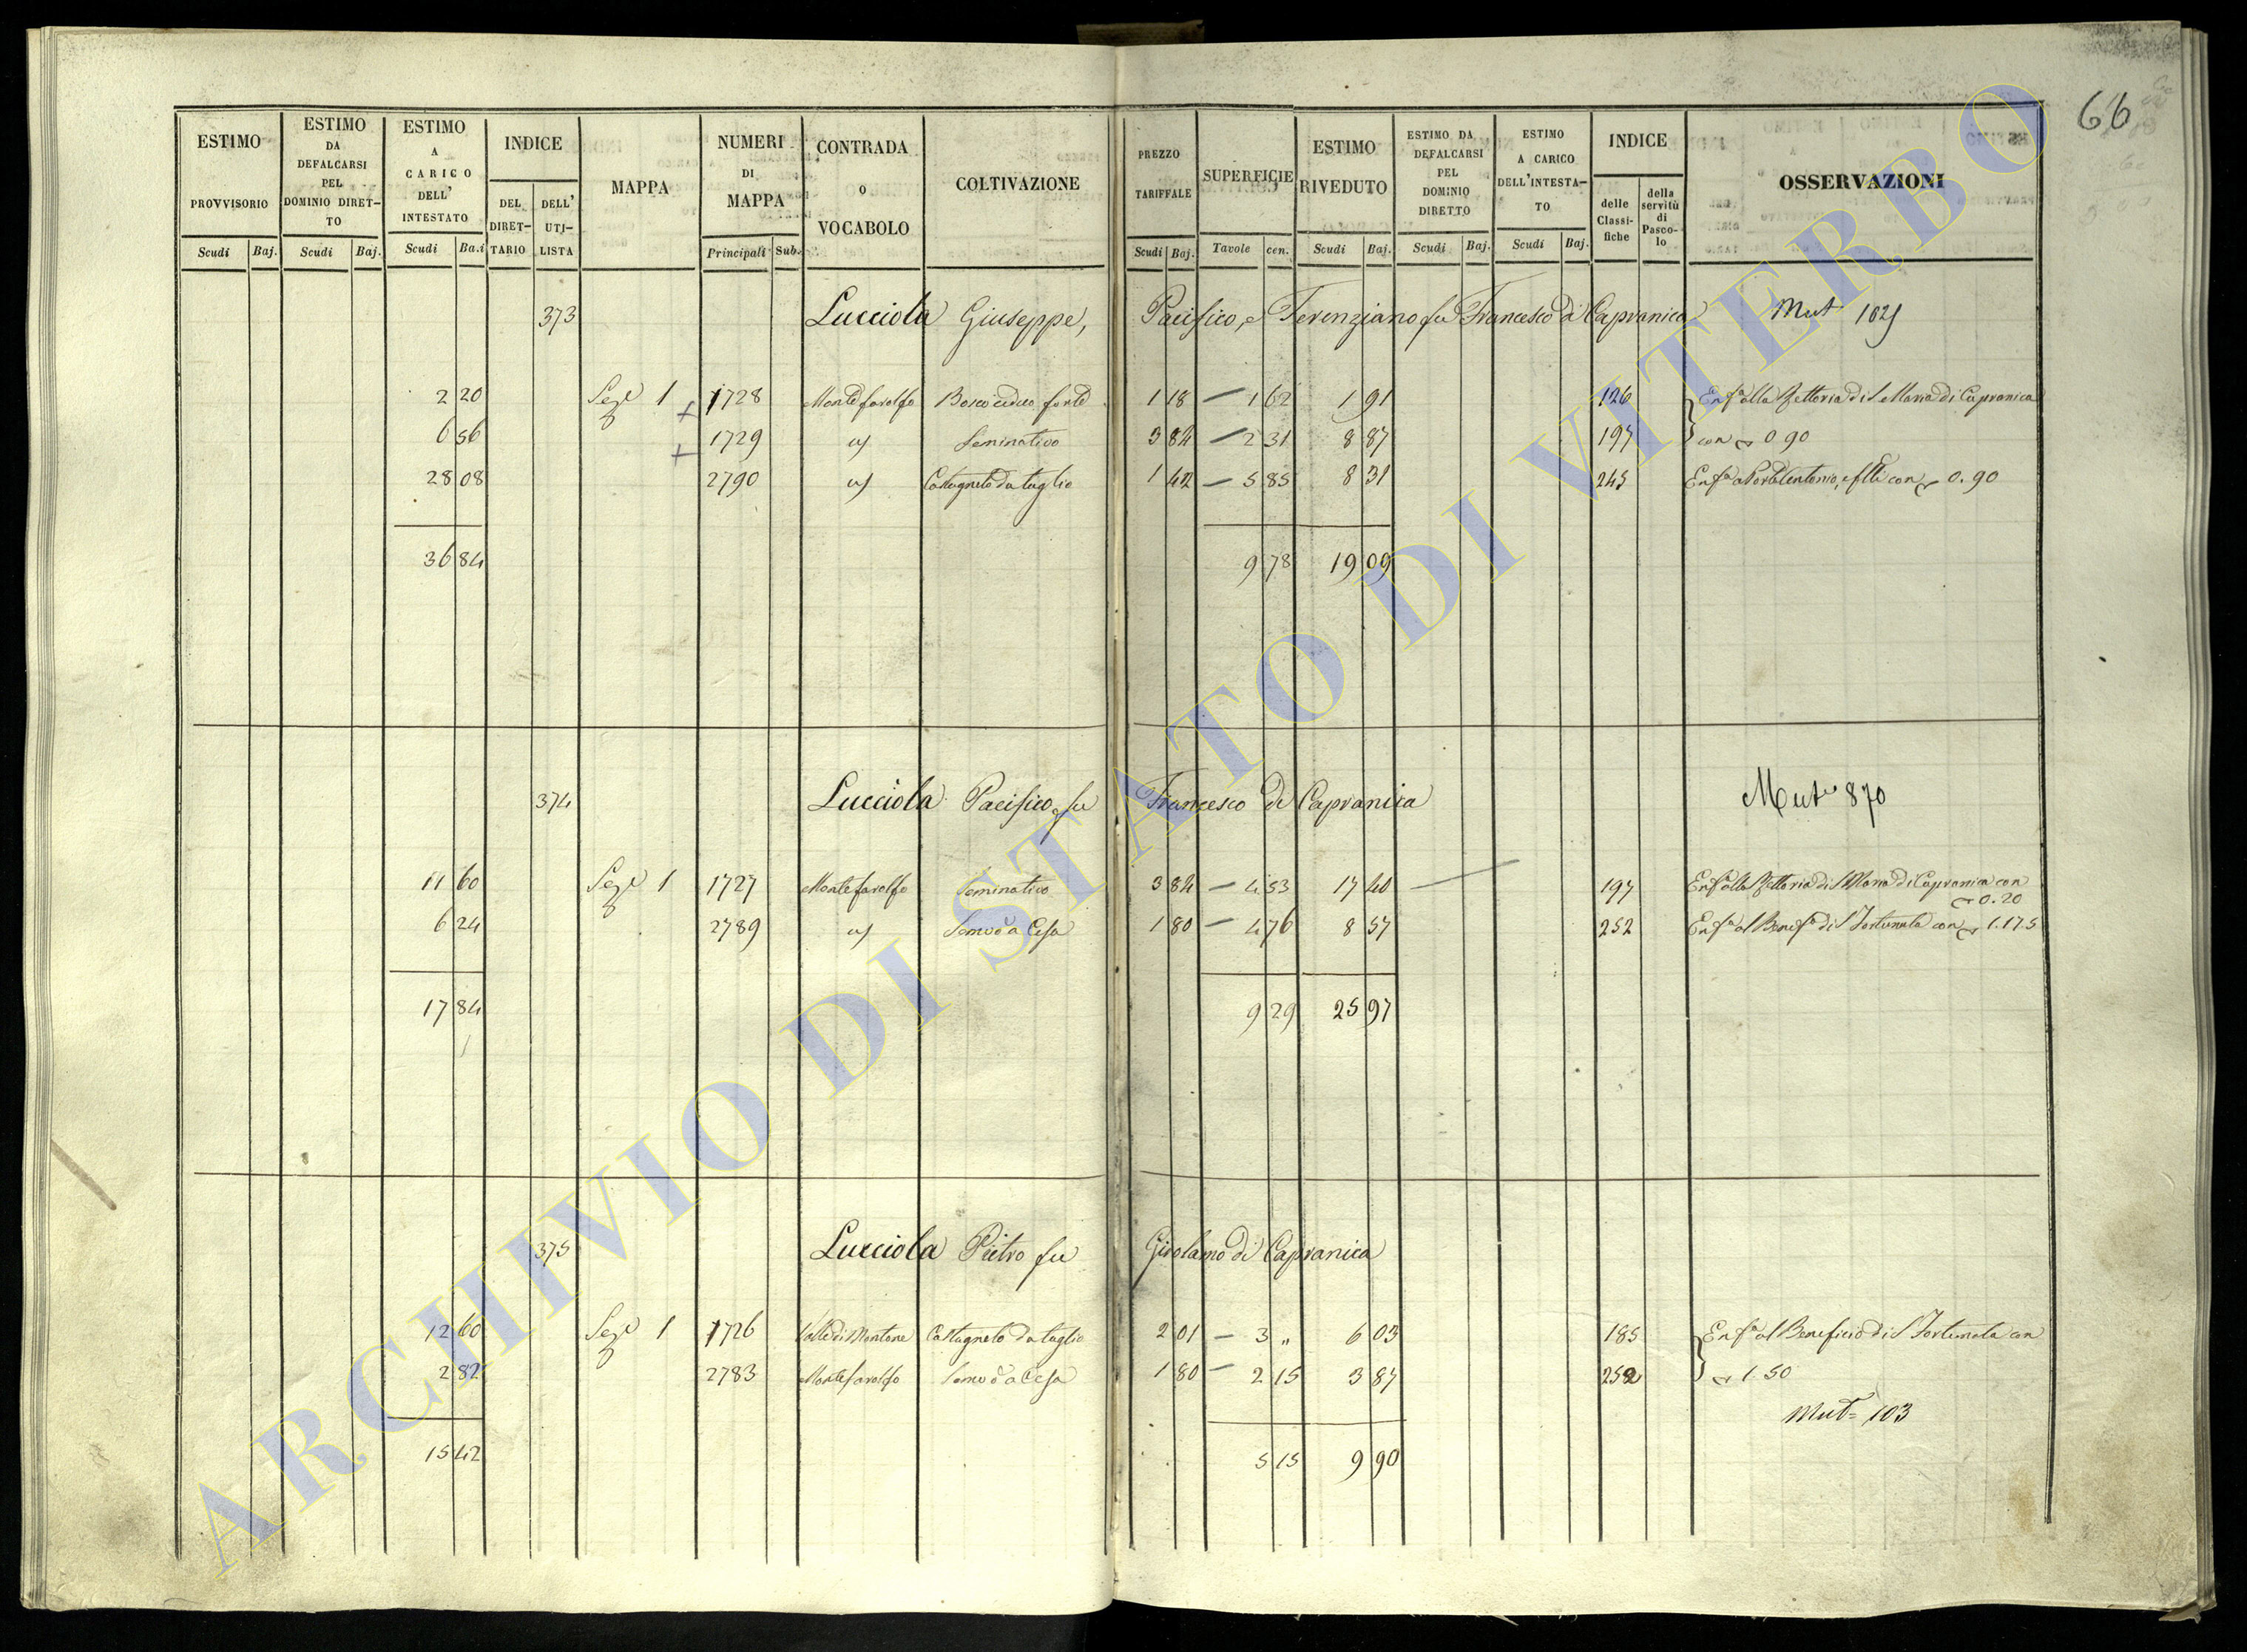 66
ESTIMO PROVVISORIO Scudi Baj.
ESTIMO DA DEFALCARSI PEL DOMINIO DIRET–TO Scudi Baj.
ESTIMO A CARICO DELL' INTESTATO Scudi Ba.i
INDICE DEL DIRET–TARIO DELL' UTI–LISTA
MAPPA
NUMERI DI MAPPA Principali Sub.
CONTRADA O VOCABOLO
COLTIVAZIONE
PREZZO TARIFFALE Scudi Baj.
SUPERFICIE Tavole cen.
ESTIMO RIVEDUTO Scudi Baj.
ESTIMO DA DEFALCARSI PEL DOMINIO DIRETTO Scudi Baj.
ESTIMO A CARICO DELL'INTESTA–TO Scudi Baj.
INDICE delle Classi-fiche della servitù di Pasco-lo
OSSERVAZIONI
373 Lucciola Giuseppe, Pacifico, e Terenziano fu Francesco di Capranica
2 20 1 1728 Montefarolfo Bosco ceduo forte 1 18 – 1 62 1 91 126 Enfa alla Rettoria di S Maria di Capranica
6 56 1729 Seminativo 3 84 – 2 31 8 87 197 con 0 90
28 08 2790 Castagneto da taglio 1 42 – 5 85 8 31 245 con 0.90
36 84 9 78 19 09
374 Lucciola Pacifico fu Francesco di Capranica Mut 870
11 60 1 1727 Montefarolfo Seminativo 3 84 – 4 53 17 40 197 Enfa alla Rettoria di S Maria di Capranica con
0.20
6 24 2789 Semvo a Cesa 1 80 – 4 76 8 57 252 Enfa al Benefo di S Fortunata con 1.17.5
17 84 9 29 25 97
375 Lucciola Pietro fu Girolamo di Capranica
12 60 1 1726 Valle di Montone Castagneto da taglio 2 01 – 3 „ 6 03 185 Enfa al Beneficio di S Fortunata con
2 82 2783 Montefarolfo Semvo a Cesa 1 80 – 2 15 3 87 252 1 50
Mut= 103
15 42 5 15 9 90
ARCHIVIO DI STATO DI VITERBO